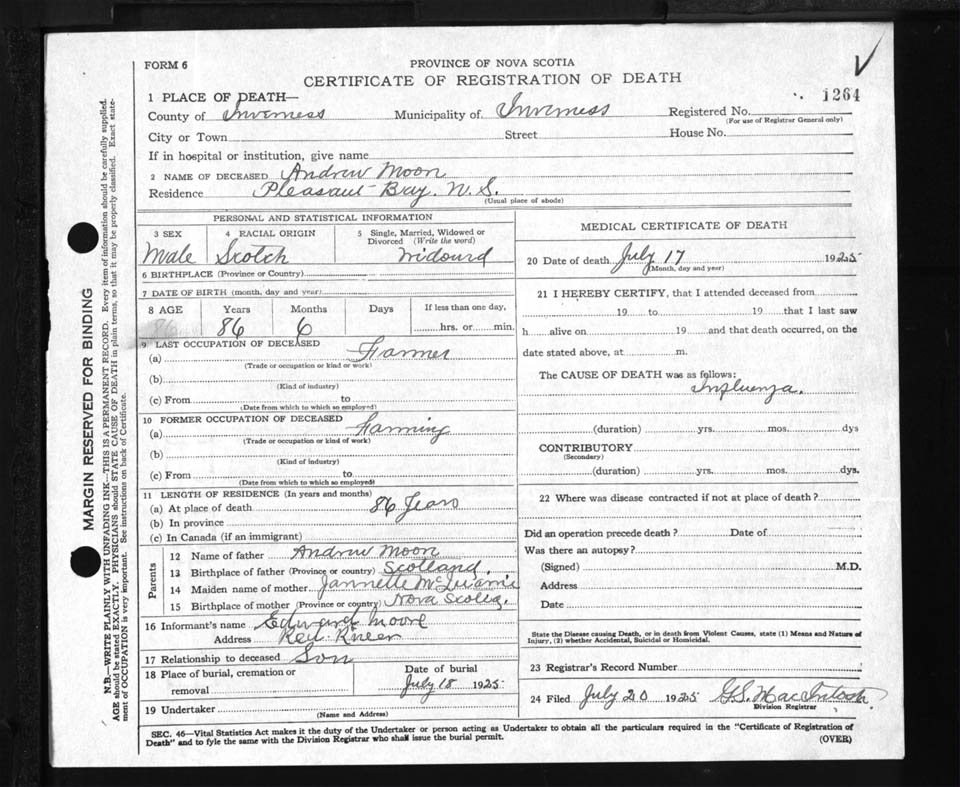 FORM 6
PROVINCE OF NOVA SCOTIA
CERTIFICATE OF REGISTRATION OF DEATH
1264
1 PLACE OF DEATH—
County of Inverness Municipality of Inverness Registered No.
(For use of Registrar General only)
City or Town Street House No.
If in hospital or institution, give name
2 NAME OF DECEASED Andrew Moon
Residence Pleasant Bay. N.S.
(Usual place of abode)
PERSONAL AND STATISTICAL INFORMATION
3 SEX 4 RACIAL ORIGIN 5 Single, Married, Widowed or Divorced (Write the word)
Male Scotch Widourd
6 BIRTHPLACE (Province or Country)
7 DATE OF BIRTH (month, day and year)
8 AGE Years Months Days If less than one day,
86 86 6 hrs. or min.
9 LAST OCCUPATION OF DECEASED
(a) Farmer
(Trade or occupation or kind of work)
(b)
(Kind of industry)
(c) From to
(Date from which to which so employed)
10 FORMER OCCUPATION OF DECEASED
(a) Farming
(Trade or occupation or kind of work)
(b)
(Kind of industry)
(c) From to
(Date from which to which so employed)
11 LENGTH OF RESIDENCE (In years and months)
(a) At place of death 86 Years
(b) In province
(c) In Canada (if an immigrant)
Parents
12 Name of father Andrew Moon
13 Birthplace of father (Province or country) Scotland.
14 Maiden name of mother Jannette
15 Birthplace of mother (Province or country) Nova Scotia.
16 Informant's name Edward Moore
Address Red River
17 Relationship to deceased Son
18 Place of burial, cremation or removal Date of burial
July 18 1925
19 Undertaker
(Name and Address)
MEDICAL CERTIFICATE OF DEATH
20 Date of death July 17 1925
(Month, day and year)
21 I HEREBY CERTIFY, that I attended deceased from
19 to 19 that I last saw
h alive on 19 and that death occurred, on the
date stated above, at m.
The CAUSE OF DEATH was as follows:
Influenza.
(duration) yrs. mos. dys
CONTRIBUTORY
(Secondary)
(duration) yrs. mos. dys.
22 Where was disease contracted if not at place of death?
Did an operation precede death? Date of
Was there an autopsy?
(Signed) M.D.
Address
Date
State the Disease causing Death, or in death from Violent Causes, state (1) Means and Nature of
Injury, (2) whether Accidental, Suicidal or Homicidal.
23 Registrar's Record Number
24 Filed July 20 1925 G.S. MacIntosh.
Division Registrar
SEC. 46—Vital Statistics Act makes it the duty of the Undertaker or person acting as Undertaker to obtain all the particulars required in the "Certificate of Registration of
Death" and to fyle the same with the Division Registrar who shall issue the burial permit.
(OVER)
MARGIN RESERVED FOR BINDING
N.B.—WRITE PLAINLY WITH UNFADING INK—THIS IS A PERMANENT RECORD. Every item of information should be carefully supplied.
AGE should be stated EXACTLY. PHYSICIANS should STATE CAUSE OF DEATH in plain terms, so that it may be properly classified. Exact state-
ment of OCCUPATION is very important. See instructions on back of Certificate.